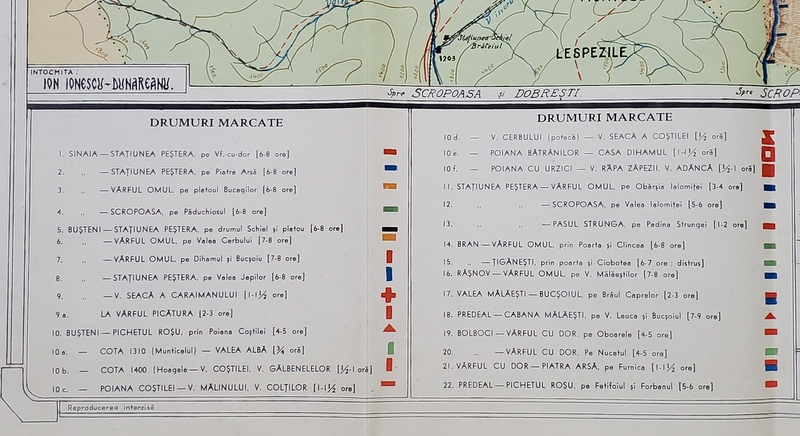 Stațiunea Schiel
Brăteiul
1203
LESPEZILE
1800
1500
1400
1500
INTOCMITA:
ION IONESCU-DUNAREANU.
Spre SCROPOASA și DOBREȘTI.
Spre SCROP
DRUMURI MARCATE
1. SINAIA — STAȚIUNEA PEȘTERA, pe Vf.-cu-dor [6-8 ore]
2. „ — STAȚIUNEA PEȘTERA, pe Piatra Arsă [6-8 ore]
3. „ — VÂRFUL OMUL, pe platoul Bucegilor [6-8 ore]
4. „ — SCROPOASA, pe Păduchiosul [6-8 ore]
5. BUȘTENI — STAȚIUNEA PEȘTERA, pe drumul Schiel și platou [6-8 ore]
6. „ — VÂRFUL OMUL, pe Valea Cerbului [7-8 ore]
7. „ — VÂRFUL OMUL, pe Dihamul și Bucșoiu [7-8 ore]
8. „ — STAȚIUNEA PEȘTERA, pe Valea Jepilor [6-8 ore]
9. „ — V. SEACĂ A CARAIMANULUI [1-1½ ore]
9 a. LA VÂRFUL PICĂTURA [2-3 ore]
10. BUȘTENI — PICHETUL ROȘU, prin Poiana Coștilei [4-5 ore]
10 a. — COTA 1310 (Munticelul) — VALEA ALBĂ [¾ oră]
10 b. — COTA 1400 (Hoagele — V. COȘTILEI, V. GĂLBENELELOR [½-1 oră]
10 c. — POIANA COȘTILEI — V. MĂLINULUI, V. COLȚILOR [1-1½ ore]
DRUMURI MARCATE
10 d. — V. CERBULUI (potecă) — V. SEACĂ A COȘTILEI [½ oră]
10 e. — POIANA BĂTRÂNILOR — CASA DIHAMUL [1-1½ oră]
10 f. — POIANA CU URZICI — V. RÂPA ZĂPEZII, V. ADÂNCĂ [½-1 oră]
11. STAȚIUNEA PEȘTERA — VÂRFUL OMUL, pe Obârșia Ialomiței [3-4 ore]
12. „ „ — SCROPOASA, pe Valea Ialomiței [5-6 ore]
13. „ „ — PASUL STRUNGA, pe Padina Strungei [1-2 ore]
14. BRAN — VÂRFUL OMUL, prin Poarta și Clincea [6-8 ore]
15. „ — ȚIGĂNEȘTI, prin poarta și Ciobotea [6-7 ore : distrus]
16. RÂȘNOV — VÂRFUL OMUL, pe V. Mălăeștilor [7-8 ore]
17. VALEA MĂLĂEȘTI — BUCȘOIUL, pe Brâul Caprelor [2-3 ore]
18. PREDEAL — CABANA MĂLĂEȘTI, pe V. Leuca și Bucșoiul [7-9 ore]
19. BOLBOCI — VÂRFUL CU DOR, pe Oboarele [4-5 ore]
20. „ — VÂRFUL CU DOR, Pe Nucetul [4-5 ore]
21. VÂRFUL CU DOR — PIATRA ARSĂ, pe Furnica [1-1½ ore]
22. PREDEAL — PICHETUL ROȘU, pe Fetifoiul și Forbanul [5-6 ore]
Reproducerea interzisă